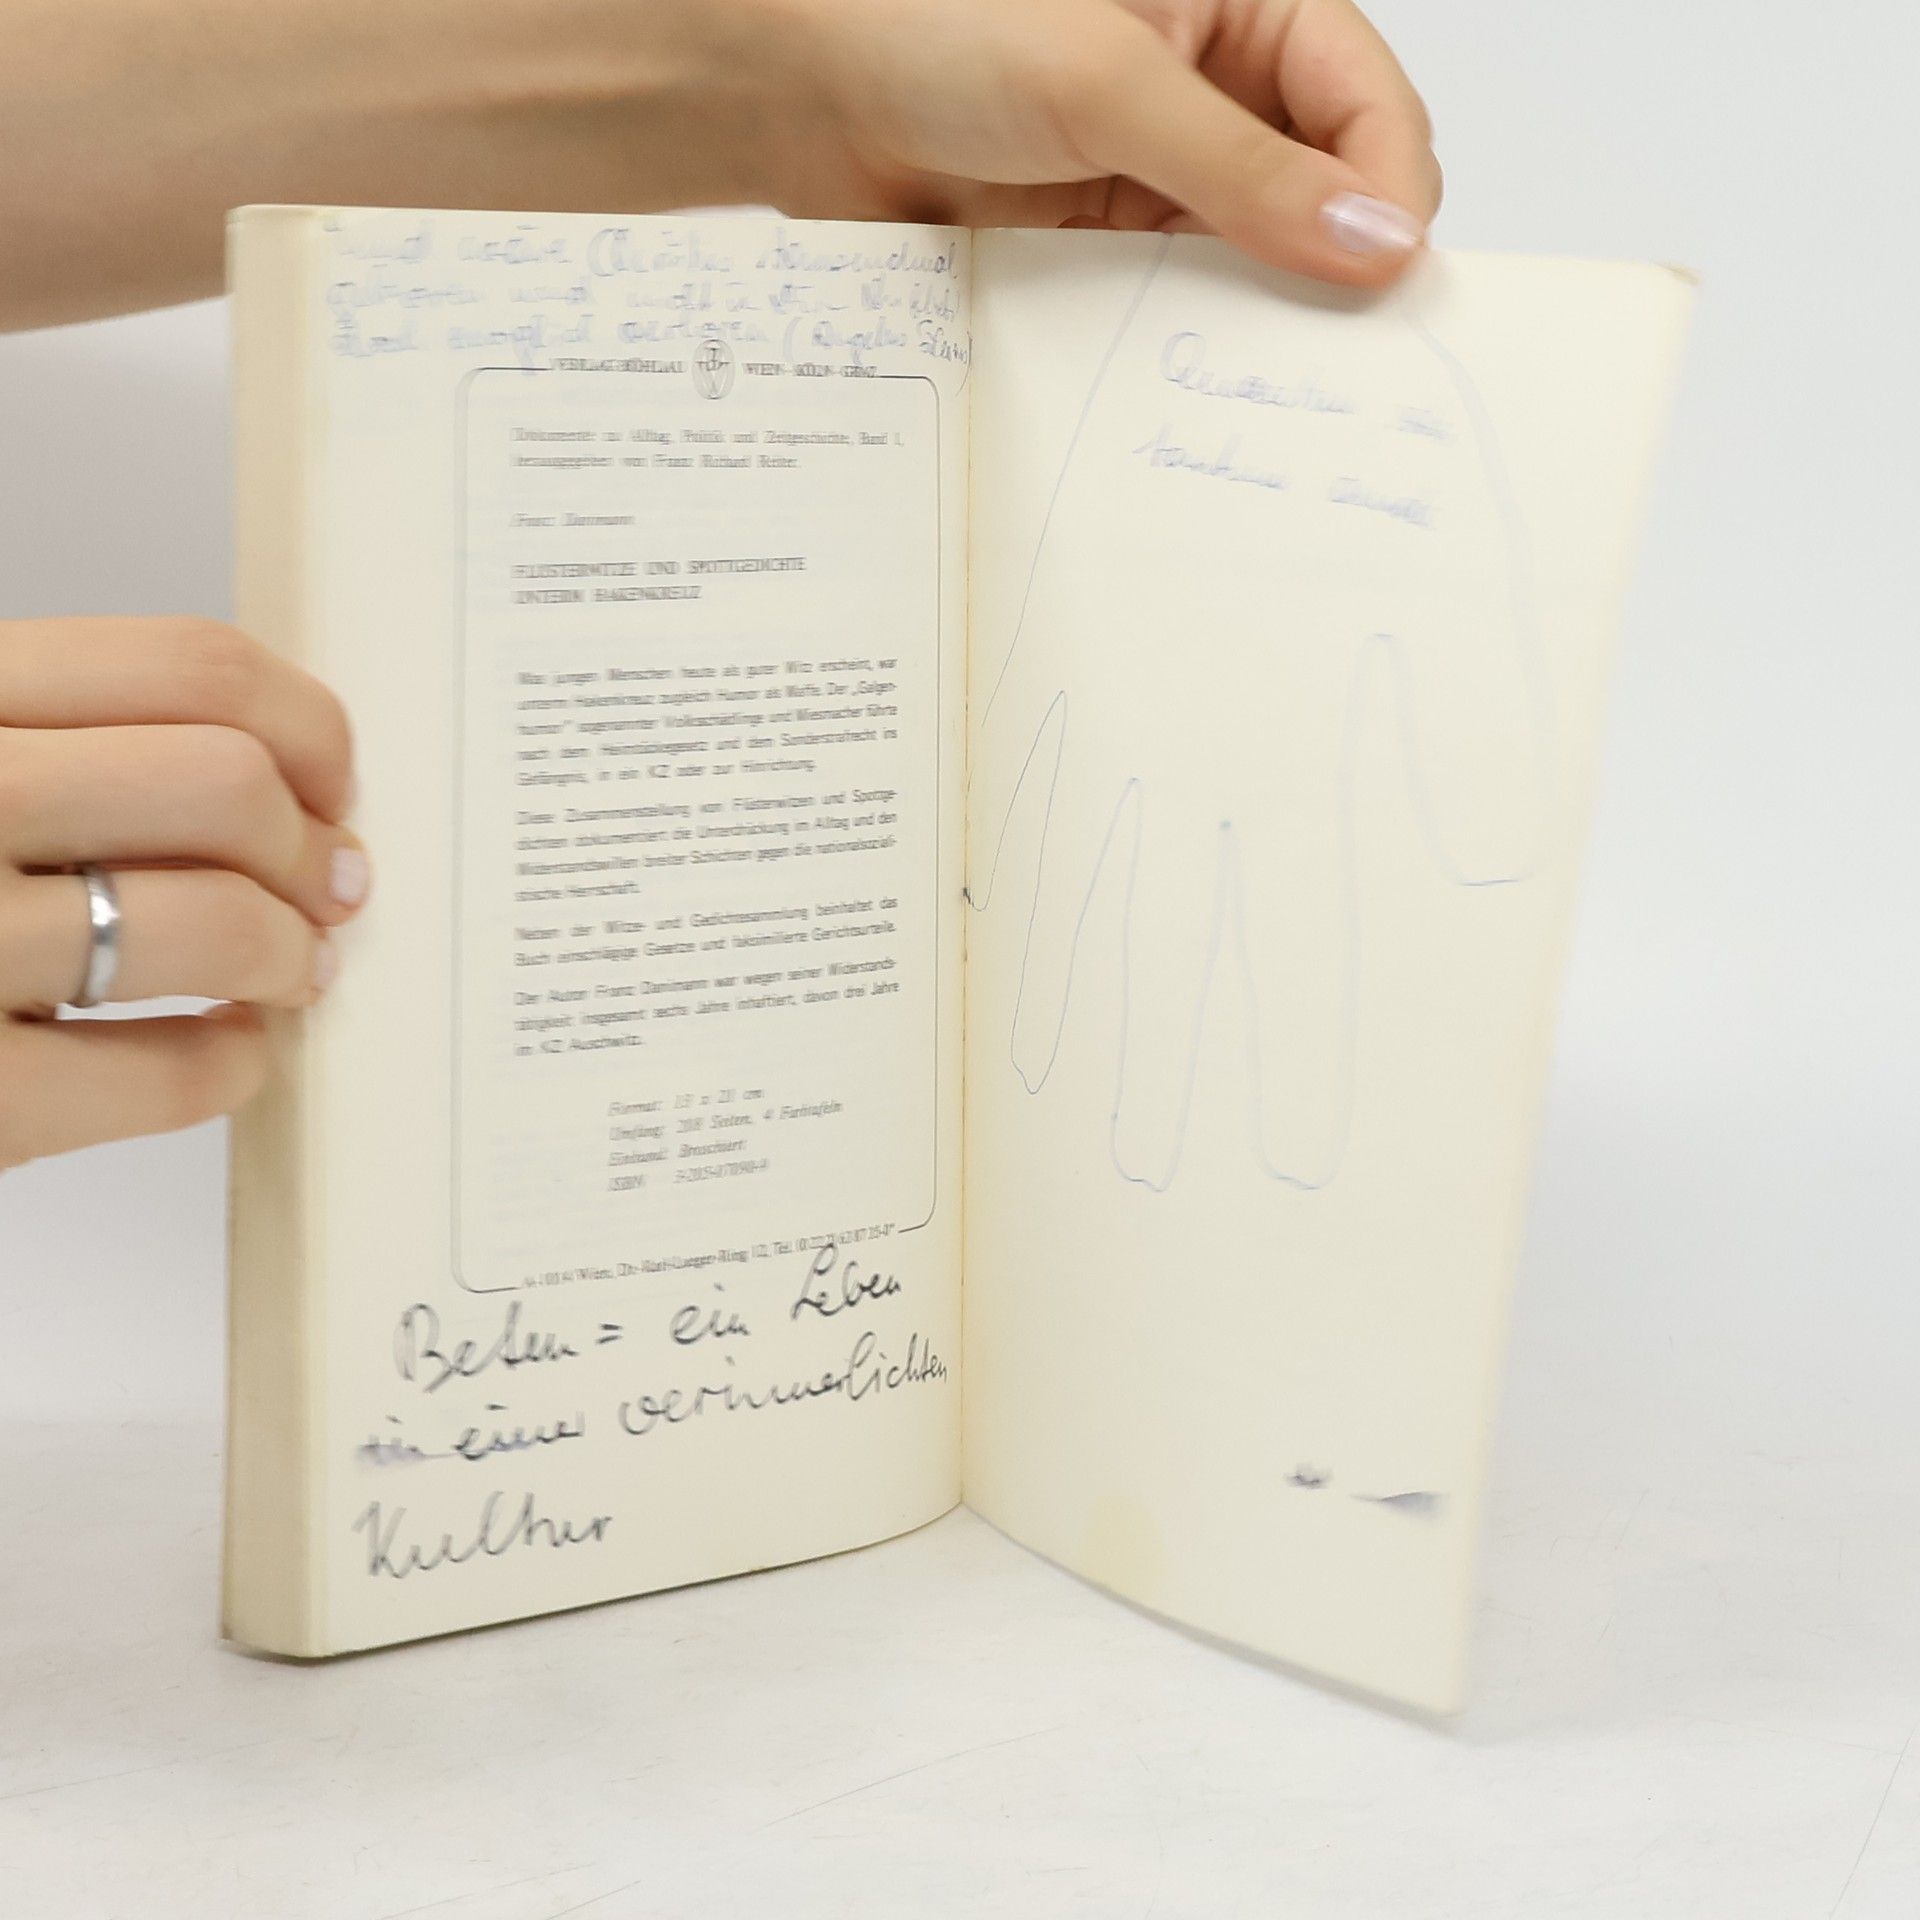 und wäre Christus tausendmal
geboren und nicht in dir
verloren (Angelus
VERLAG BÖHLAU WIEN · KÖLN · GRAZ
Dokumente zu Alltag, Politik und Zeitgeschichte, Band 1,
herausgegeben von Franz Richard Reiter.
Franz Danimann
FLÜSTERWITZE UND SPOTTGEDICHTE
UNTERM HAKENKREUZ
Was jungen Menschen heute als guter Witz erscheint, war
unterm Hakenkreuz zugleich Humor als Waffe. Der „Galgen-
humor" sogenannter Volksschädlinge und Miesmacher führte
nach dem Heimtückegesetz und dem Sonderstrafrecht ins
Gefängnis, in ein KZ oder zur Hinrichtung.
Diese Zusammenstellung von Flüsterwitzen und Spottge-
dichten dokumentiert die Unterdrückung im Alltag und den
Widerstandswillen breiter Schichten gegen die nationalsoziali-
stische Herrschaft.
Neben der Witze- und Gedichtesammlung beinhaltet das
Buch einschlägige Gesetze und faksimilierte Gerichtsurteile.
Der Autor Franz Danimann war wegen seiner Widerstands-
tätigkeit insgesamt sechs Jahre inhaftiert, davon drei Jahre
im KZ Auschwitz.
Format: 13 x 21 cm
Umfang: 208 Seiten, 4 Farbtafeln
Einband: Broschiert
ISBN: 3-205-07090-9
Wien, Dr.-Karl-Lueger-Ring 12, Tel.
Beten = ein Leben
in einer verinnerlichten
Kultur